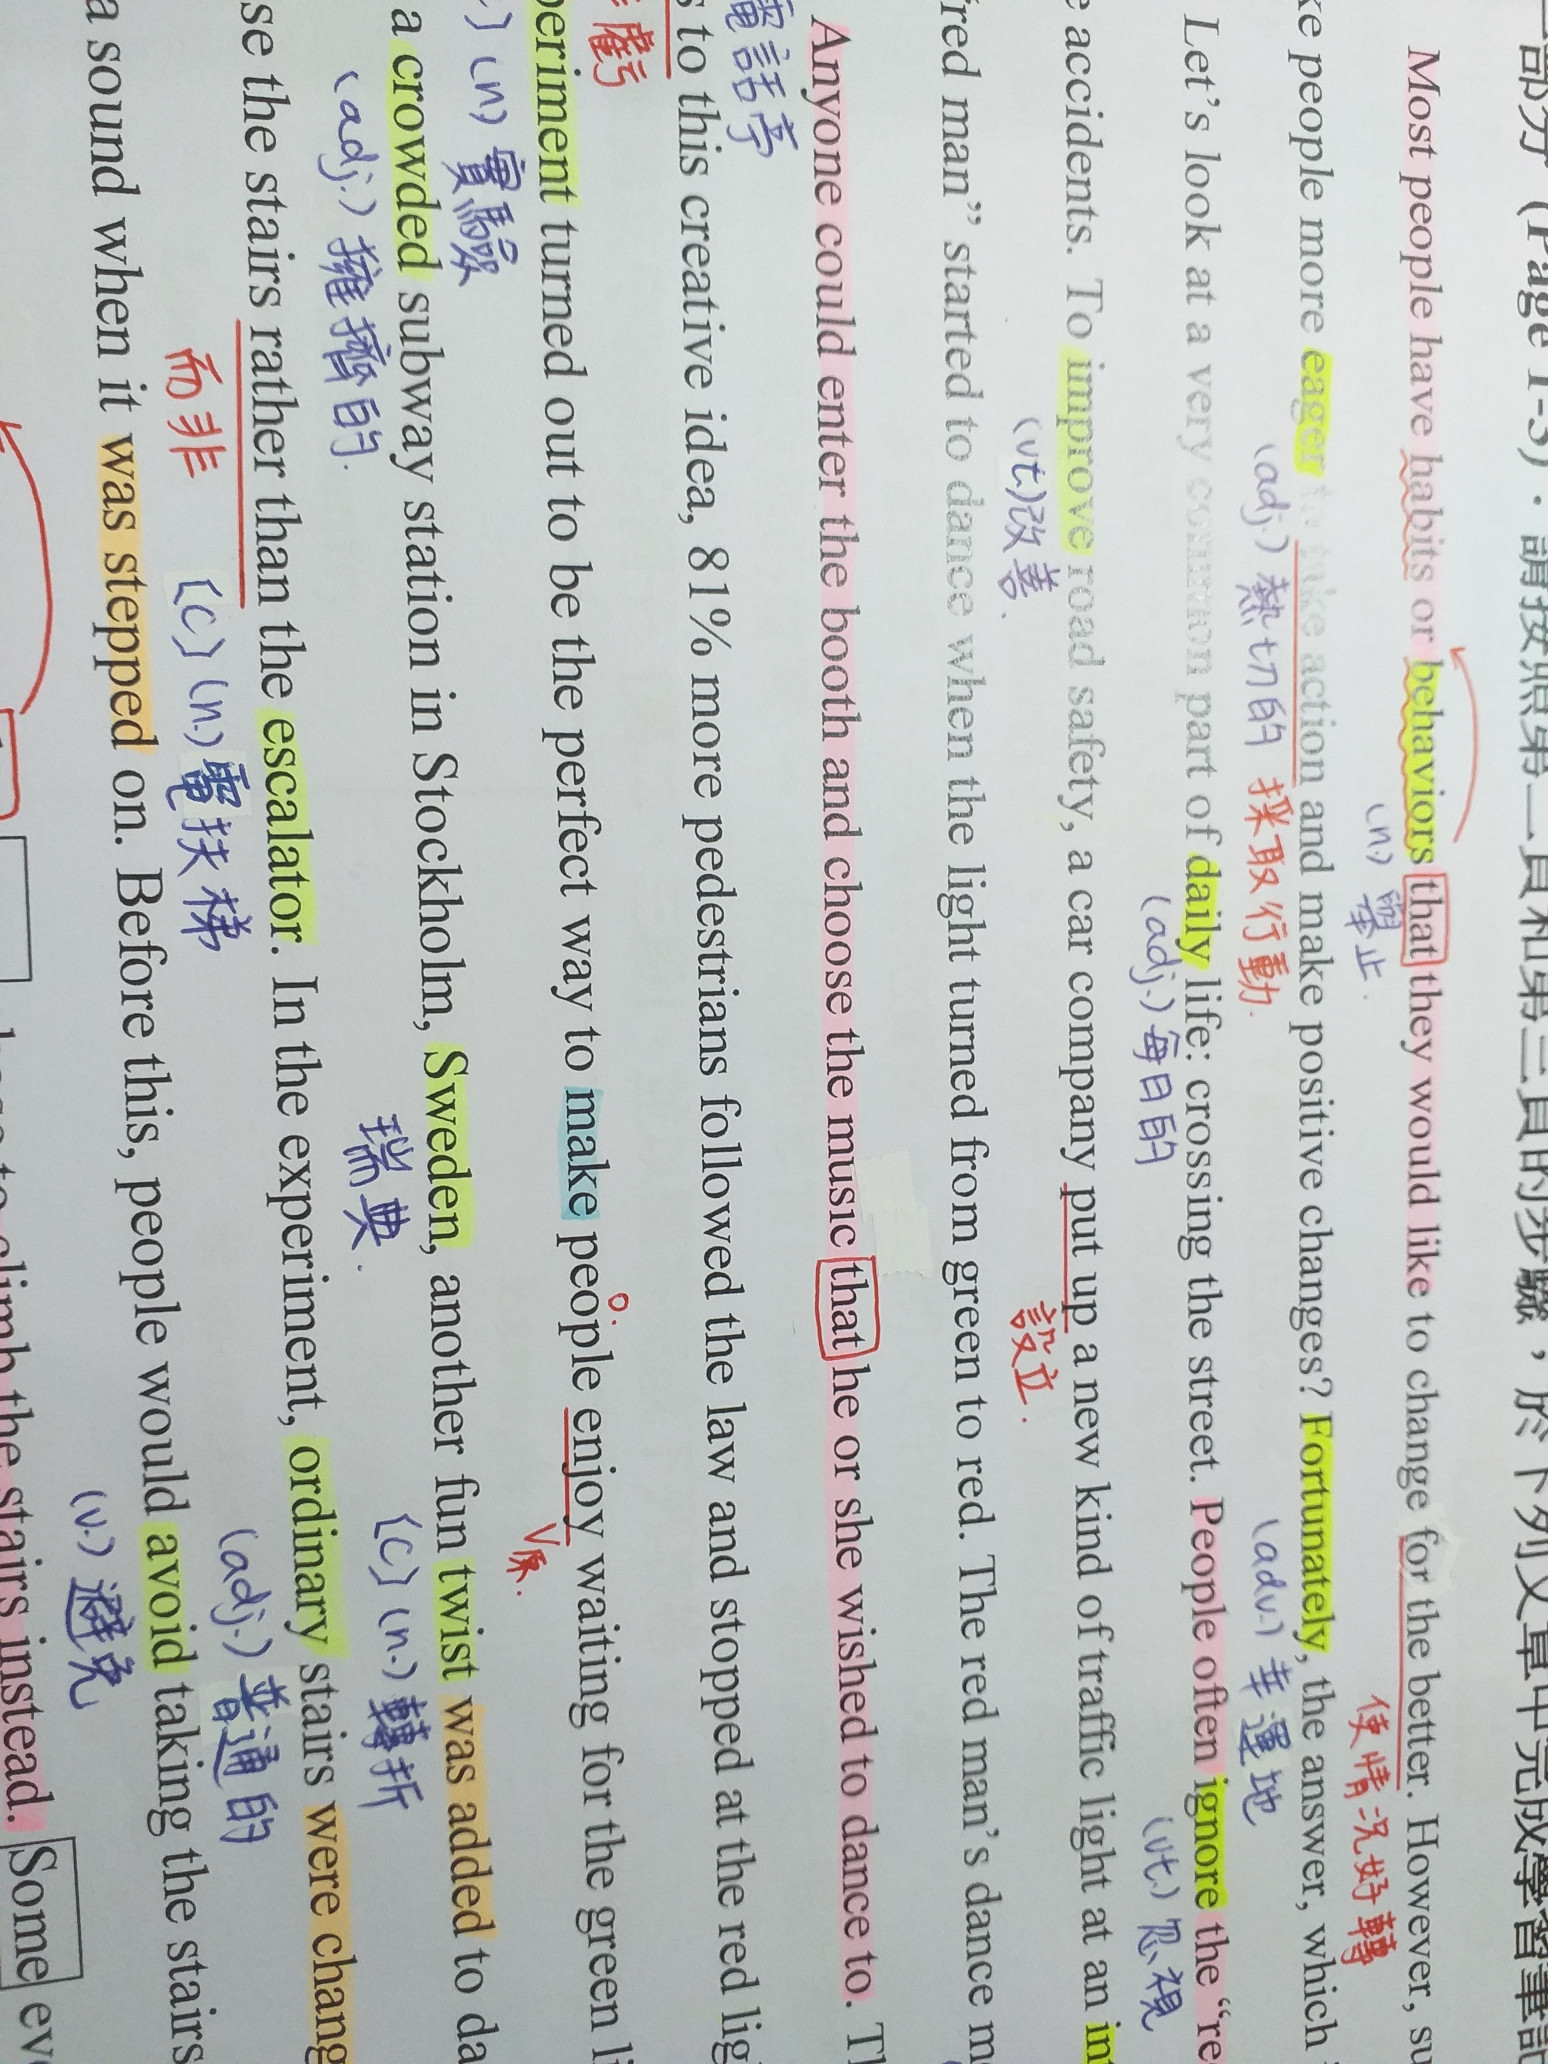 部分 (Page 1-3)：請按照第一頁和第三頁的步驟，於下列文章中完成學習筆記
Most people have habits or behaviors that they would like to change for the better. However, su
(n.) 舉止.
使情況好轉
ke people more eager to take action and make positive changes? Fortunately, the answer, which
(adj.) 熱切的 採取行動.
(adv.) 幸運地
Let's look at a very common part of daily life: crossing the street. People often ignore the “re
(adj.) 每日的
(vt.) 忽視
e accidents. To improve road safety, a car company put up a new kind of traffic light at an in
(vt.) 改善.
設立.
red man” started to dance when the light turned from green to red. The red man's dance m
Anyone could enter the booth and choose the music that he or she wished to dance to. T
電話亭
s to this creative idea, 81% more pedestrians followed the law and stopped at the red lig
虧
O.
periment turned out to be the perfect way to make people enjoy waiting for the green li
(n) 實驗
V原.
a crowded subway station in Stockholm, Sweden, another fun twist was added to da
(adj.) 擁擠的.
瑞典.
(C) (n.) 轉折
se the stairs rather than the escalator. In the experiment, ordinary stairs were chang
而非
(C) (n.) 電扶梯
(adj.) 普通的
a sound when it was stepped on. Before this, people would avoid taking the stairs
(v.) 避免
climb the stairs instead. Some ev